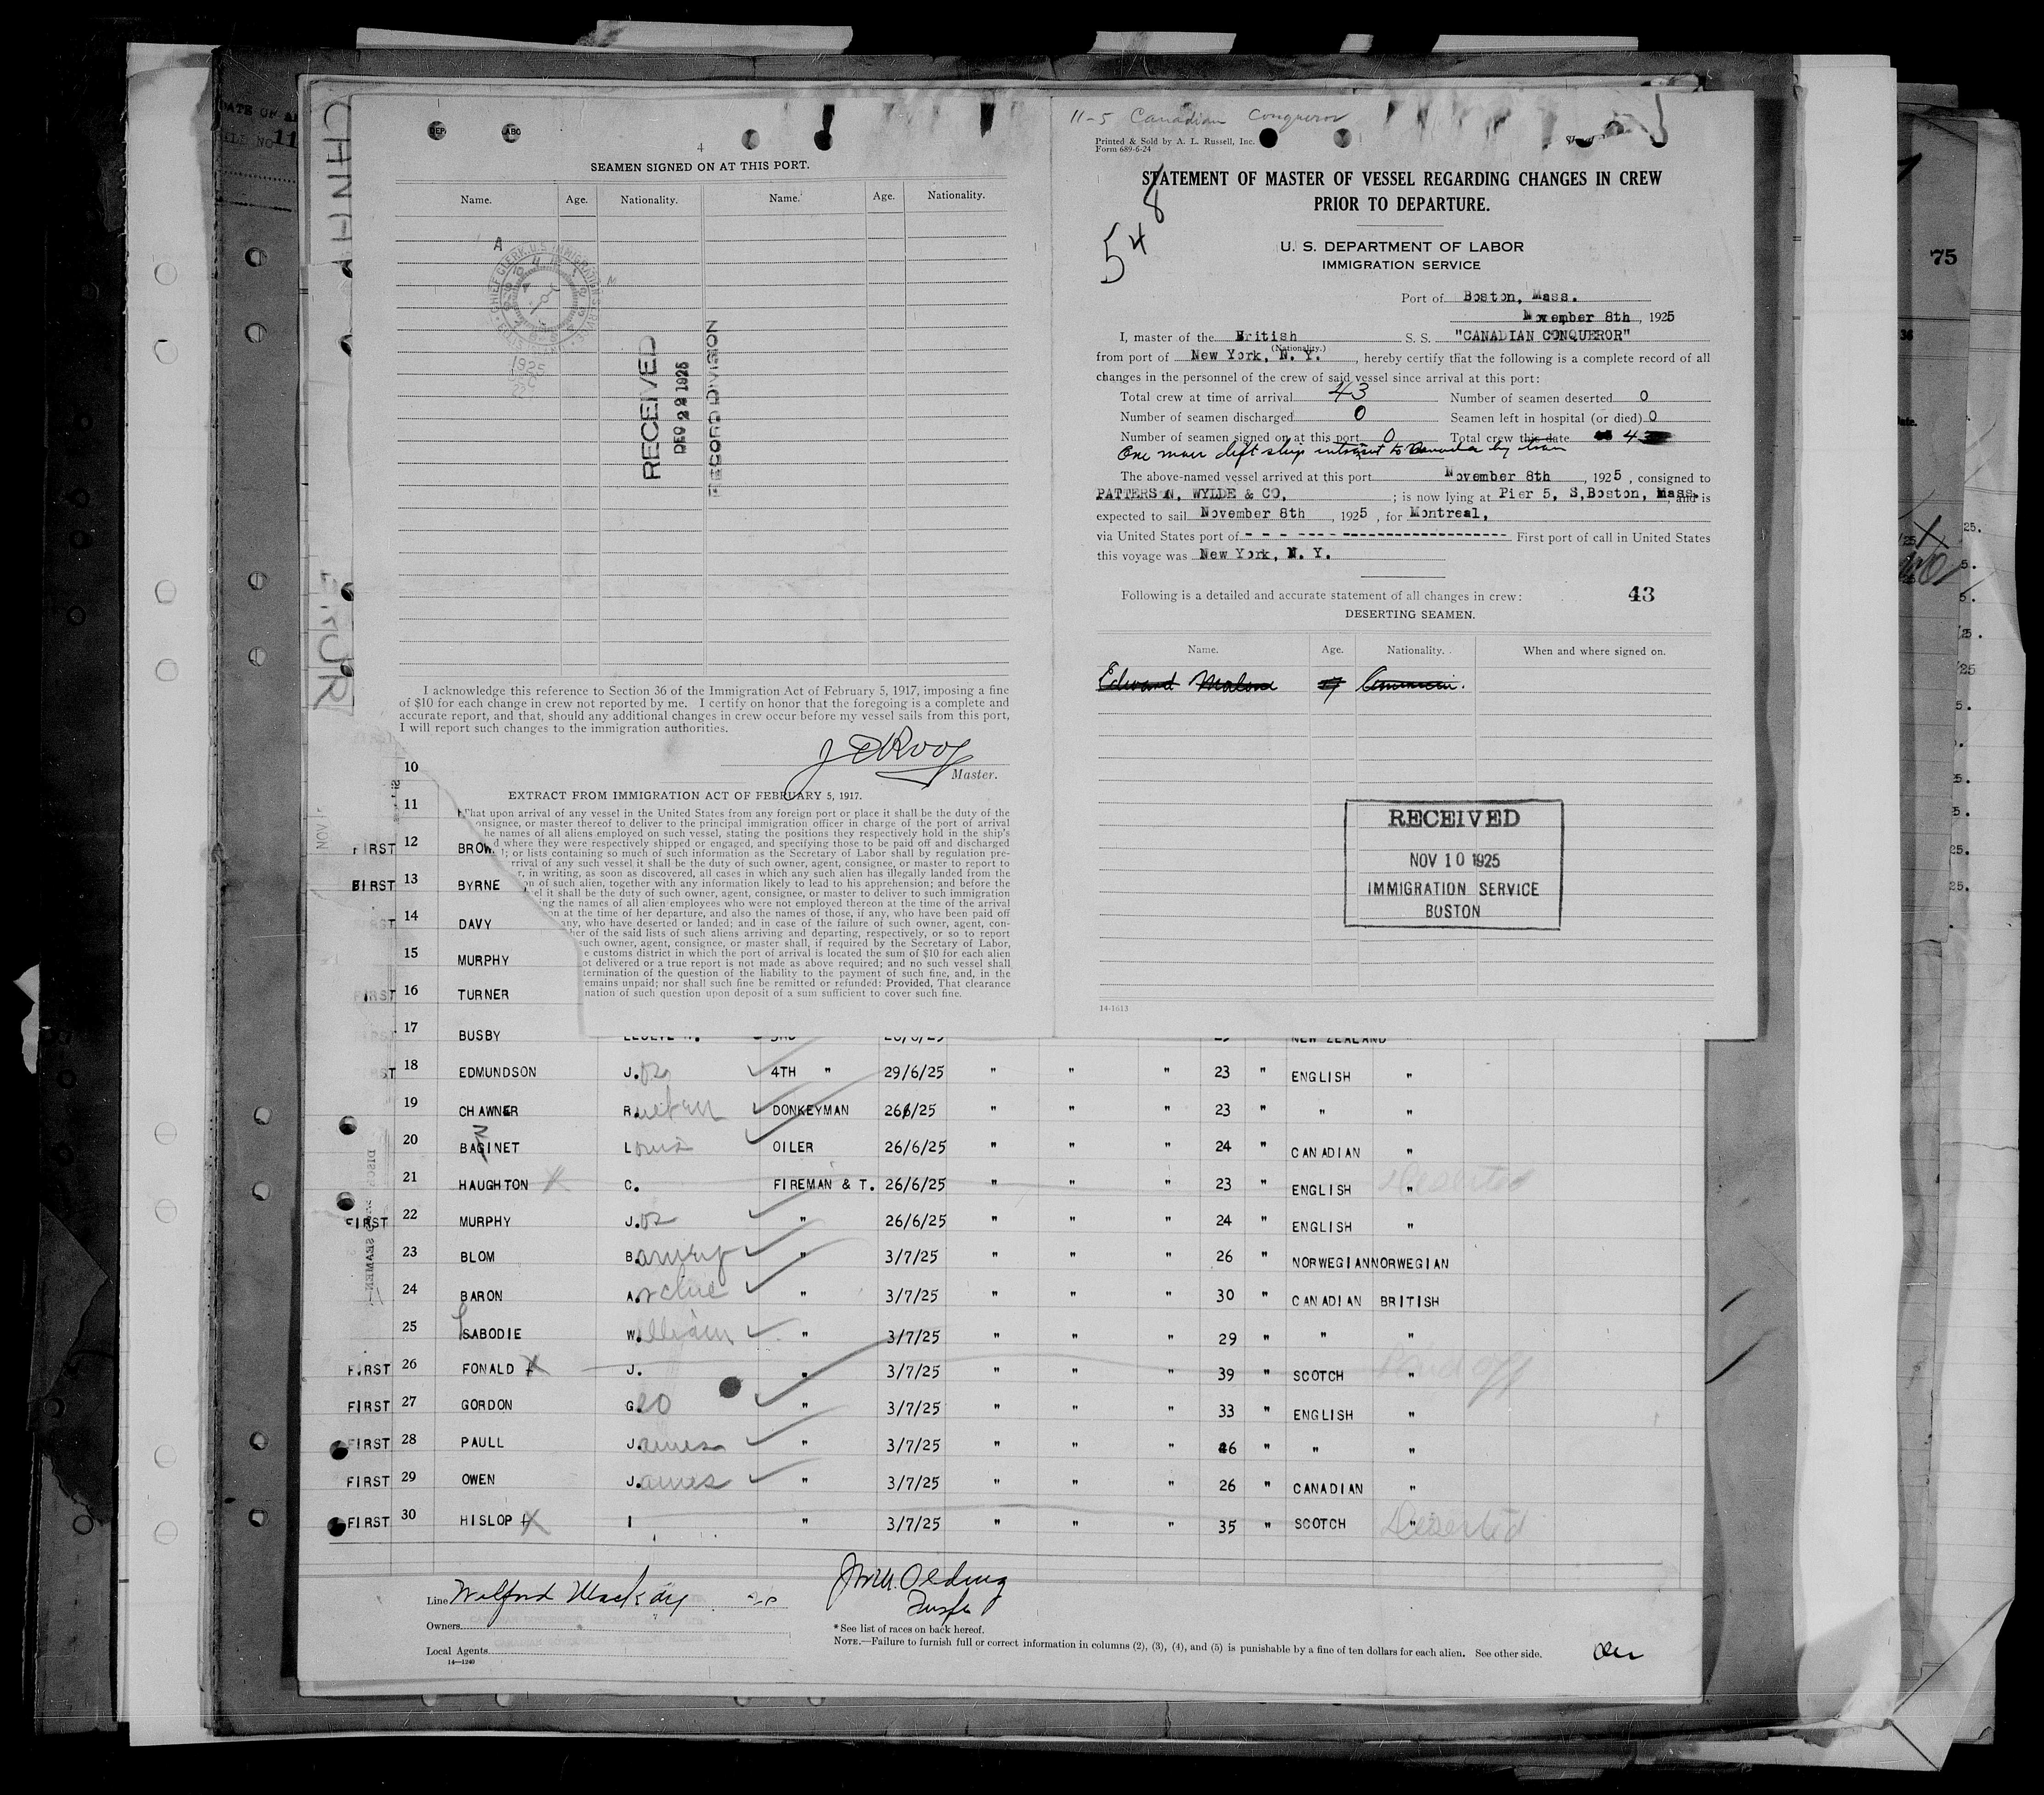 4
SEAMEN SIGNED ON AT THIS PORT.
Name. Age. Nationality. Name. Age. Nationality.
CHIEF CLERK, U.S. IMMIGRATION SERVICE
1925
RECEIVED
DEC 22 1925
RECORD DIVISION
I acknowledge this reference to Section 36 of the Immigration Act of February 5, 1917, imposing a fine
of $10 for each change in crew not reported by me. I certify on honor that the foregoing is a complete and
accurate report, and that, should any additional changes in crew occur before my vessel sails from this port,
I will report such changes to the immigration authorities.
Master.
EXTRACT FROM IMMIGRATION ACT OF FEBRUARY 5, 1917.
That upon arrival of any vessel in the United States from any foreign port or place it shall be the duty of the
onsignee, or master thereof to deliver to the principal immigration officer in charge of the port of arrival
he names of all aliens employed on such vessel, stating the positions they respectively hold in the ship's
d where they were respectively shipped or engaged, and specifying those to be paid off and discharged
; or lists containing so much of such information as the Secretary of Labor shall by regulation pre-
rrival of any such vessel it shall be the duty of such owner, agent, consignee, or master to report to
r, in writing, as soon as discovered, all cases in which any such alien has illegally landed from the
on of such alien, together with any information likely to lead to his apprehension; and before the
el it shall be the duty of such owner, agent, consignee, or master to deliver to such immigration
ing the names of all alien employees who were not employed thereon at the time of the arrival
on at the time of her departure, and also the names of those, if any, who have been paid off
any, who have deserted or landed; and in case of the failure of such owner, agent, con-
her of the said lists of such aliens arriving and departing, respectively, or so to report
such owner, agent, consignee, or master shall, if required by the Secretary of Labor,
e customs district in which the port of arrival is located the sum of $10 for each alien
ot delivered or a true report is not made as above required; and no such vessel shall
termination of the question of the liability to the payment of such fine, and, in the
emains unpaid; nor shall such fine be remitted or refunded: Provided, That clearance
nation of such question upon deposit of a sum sufficient to cover such fine.
11-5 Canadian Conqueror
Printed & Sold by A. L. Russell, Inc.
Form 689-6-24
548
STATEMENT OF MASTER OF VESSEL REGARDING CHANGES IN CREW
PRIOR TO DEPARTURE.
U. S. DEPARTMENT OF LABOR
IMMIGRATION SERVICE
Port of Boston, Mass.
November 8th, 1925
I, master of the British S. S. "CANADIAN CONQUEROR"
(Nationality.)
from port of New York, N. Y., hereby certify that the following is a complete record of all
changes in the personnel of the crew of said vessel since arrival at this port:
Total crew at time of arrival 43 Number of seamen deserted 0
Number of seamen discharged 0 Seamen left in hospital (or died) 0
Number of seamen signed on at this port 0 Total crew this date 43
One man left ship intransit to Canada by train
The above-named vessel arrived at this port November 8th, 1925, consigned to
PATTERSON, WYLDE & CO, ; is now lying at Pier 5, S,Boston, Mass. and is
expected to sail November 8th, 1925, for Montreal,
via United States port of - - - - - - - First port of call in United States
this voyage was New York, N. Y.
Following is a detailed and accurate statement of all changes in crew: 43
DESERTING SEAMEN.
Name. Age. Nationality. When and where signed on.
Edward Malone American.
RECEIVED
NOV 10 1925
IMMIGRATION SERVICE
BOSTON
14-1613
75
10
11
FIRST 12 BROW
FIRST 13 BYRNE
FIRST 14 DAVY
15 MURPHY
FIRST 16 TURNER
FIRST 17 BUSBY NEW ZEALAND "
FIRST 18 EDMUNDSON J.os 4TH " 29/6/25 " " " 23 " ENGLISH "
19 CHAWNER R. DONKEYMAN 266/25 " " " 23 " " "
20 BAGINET Louis OILER 26/6/25 " " " 24 " CANADIAN "
21 HAUGHTON X C. FIREMAN & T. 26/6/25 " " " 23 " ENGLISH " Deserted
FIRST 22 MURPHY J.os " 26/6/25 " " " 24 " ENGLISH "
23 BLOM B. " 3/7/25 " " " 26 " NORWEGIAN NORWEGIAN
24 BARON Archie " 3/7/25 " " " 30 " CANADIAN BRITISH
25 SABODIE William " 3/7/25 " " " 29 " " "
FIRST 26 FONALD X J. " 3/7/25 " " " 39 " SCOTCH " Paid off
FIRST 27 GORDON Geo " 3/7/25 " " " 33 " ENGLISH "
FIRST 28 PAULL James " 3/7/25 " " " 46 " " "
FIRST 29 OWEN James " 3/7/25 " " " 26 " CANADIAN "
FIRST 30 HISLOP X I " 3/7/25 " " " 35 " SCOTCH " Deserted
Line Wilford Mackay
Owners
Local Agents
14—1240
* See list of races on back hereof.
NOTE.—Failure to furnish full or correct information in columns (2), (3), (4), and (5) is punishable by a fine of ten dollars for each alien. See other side.